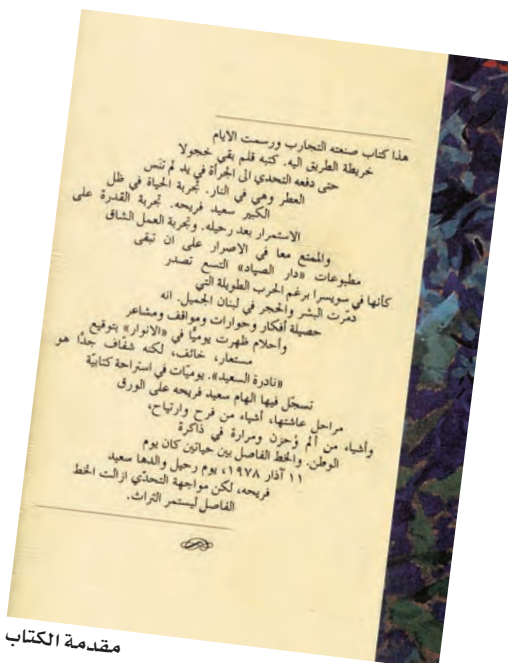 هذا كتاب صنعته التجارب ورسمت الايام
خريطة الطريق اليه. كتبه قلم بقي خجولا
حتى دفعه التحدي الى الجرأة في يد لم تنس
العطر وهي في النار. تجربة الحياة في ظل
الكبير سعيد فريحه. تجربة القدرة على
الاستمرار بعد رحيله. وتجربة العمل الشاق
والممتع معا في الاصرار على ان تبقى
مطبوعات «دار الصياد» التسع تصدر
كأنها في سويسرا برغم الحرب الطويلة التي
دمّرت البشر والحجر في لبنان الجميل. انه
حصيلة أفكار وحوارات ومواقف ومشاعر
وأحلام ظهرت يوميًا في «الانوار» بتوقيع
مستعار، خائف، لكنه شفّاف جدًا هو
«نادرة السعيد». يوميّات في استراحة كتابيّة
تسجّل فيها الهام سعيد فريحه على الورق
مراحل عاشتها، أشياء من فرح وارتياح،
وأشياء من ألم وُحزن ومرارة في ذاكرة
الوطن. والخط الفاصل بين حياتين كان يوم
١١ آذار ١٩٧٨، يوم رحيل والدها سعيد
فريحه، لكن مواجهة التحدّي ازالت الخط
الفاصل ليستمر التراث.
مقدمة الكتاب